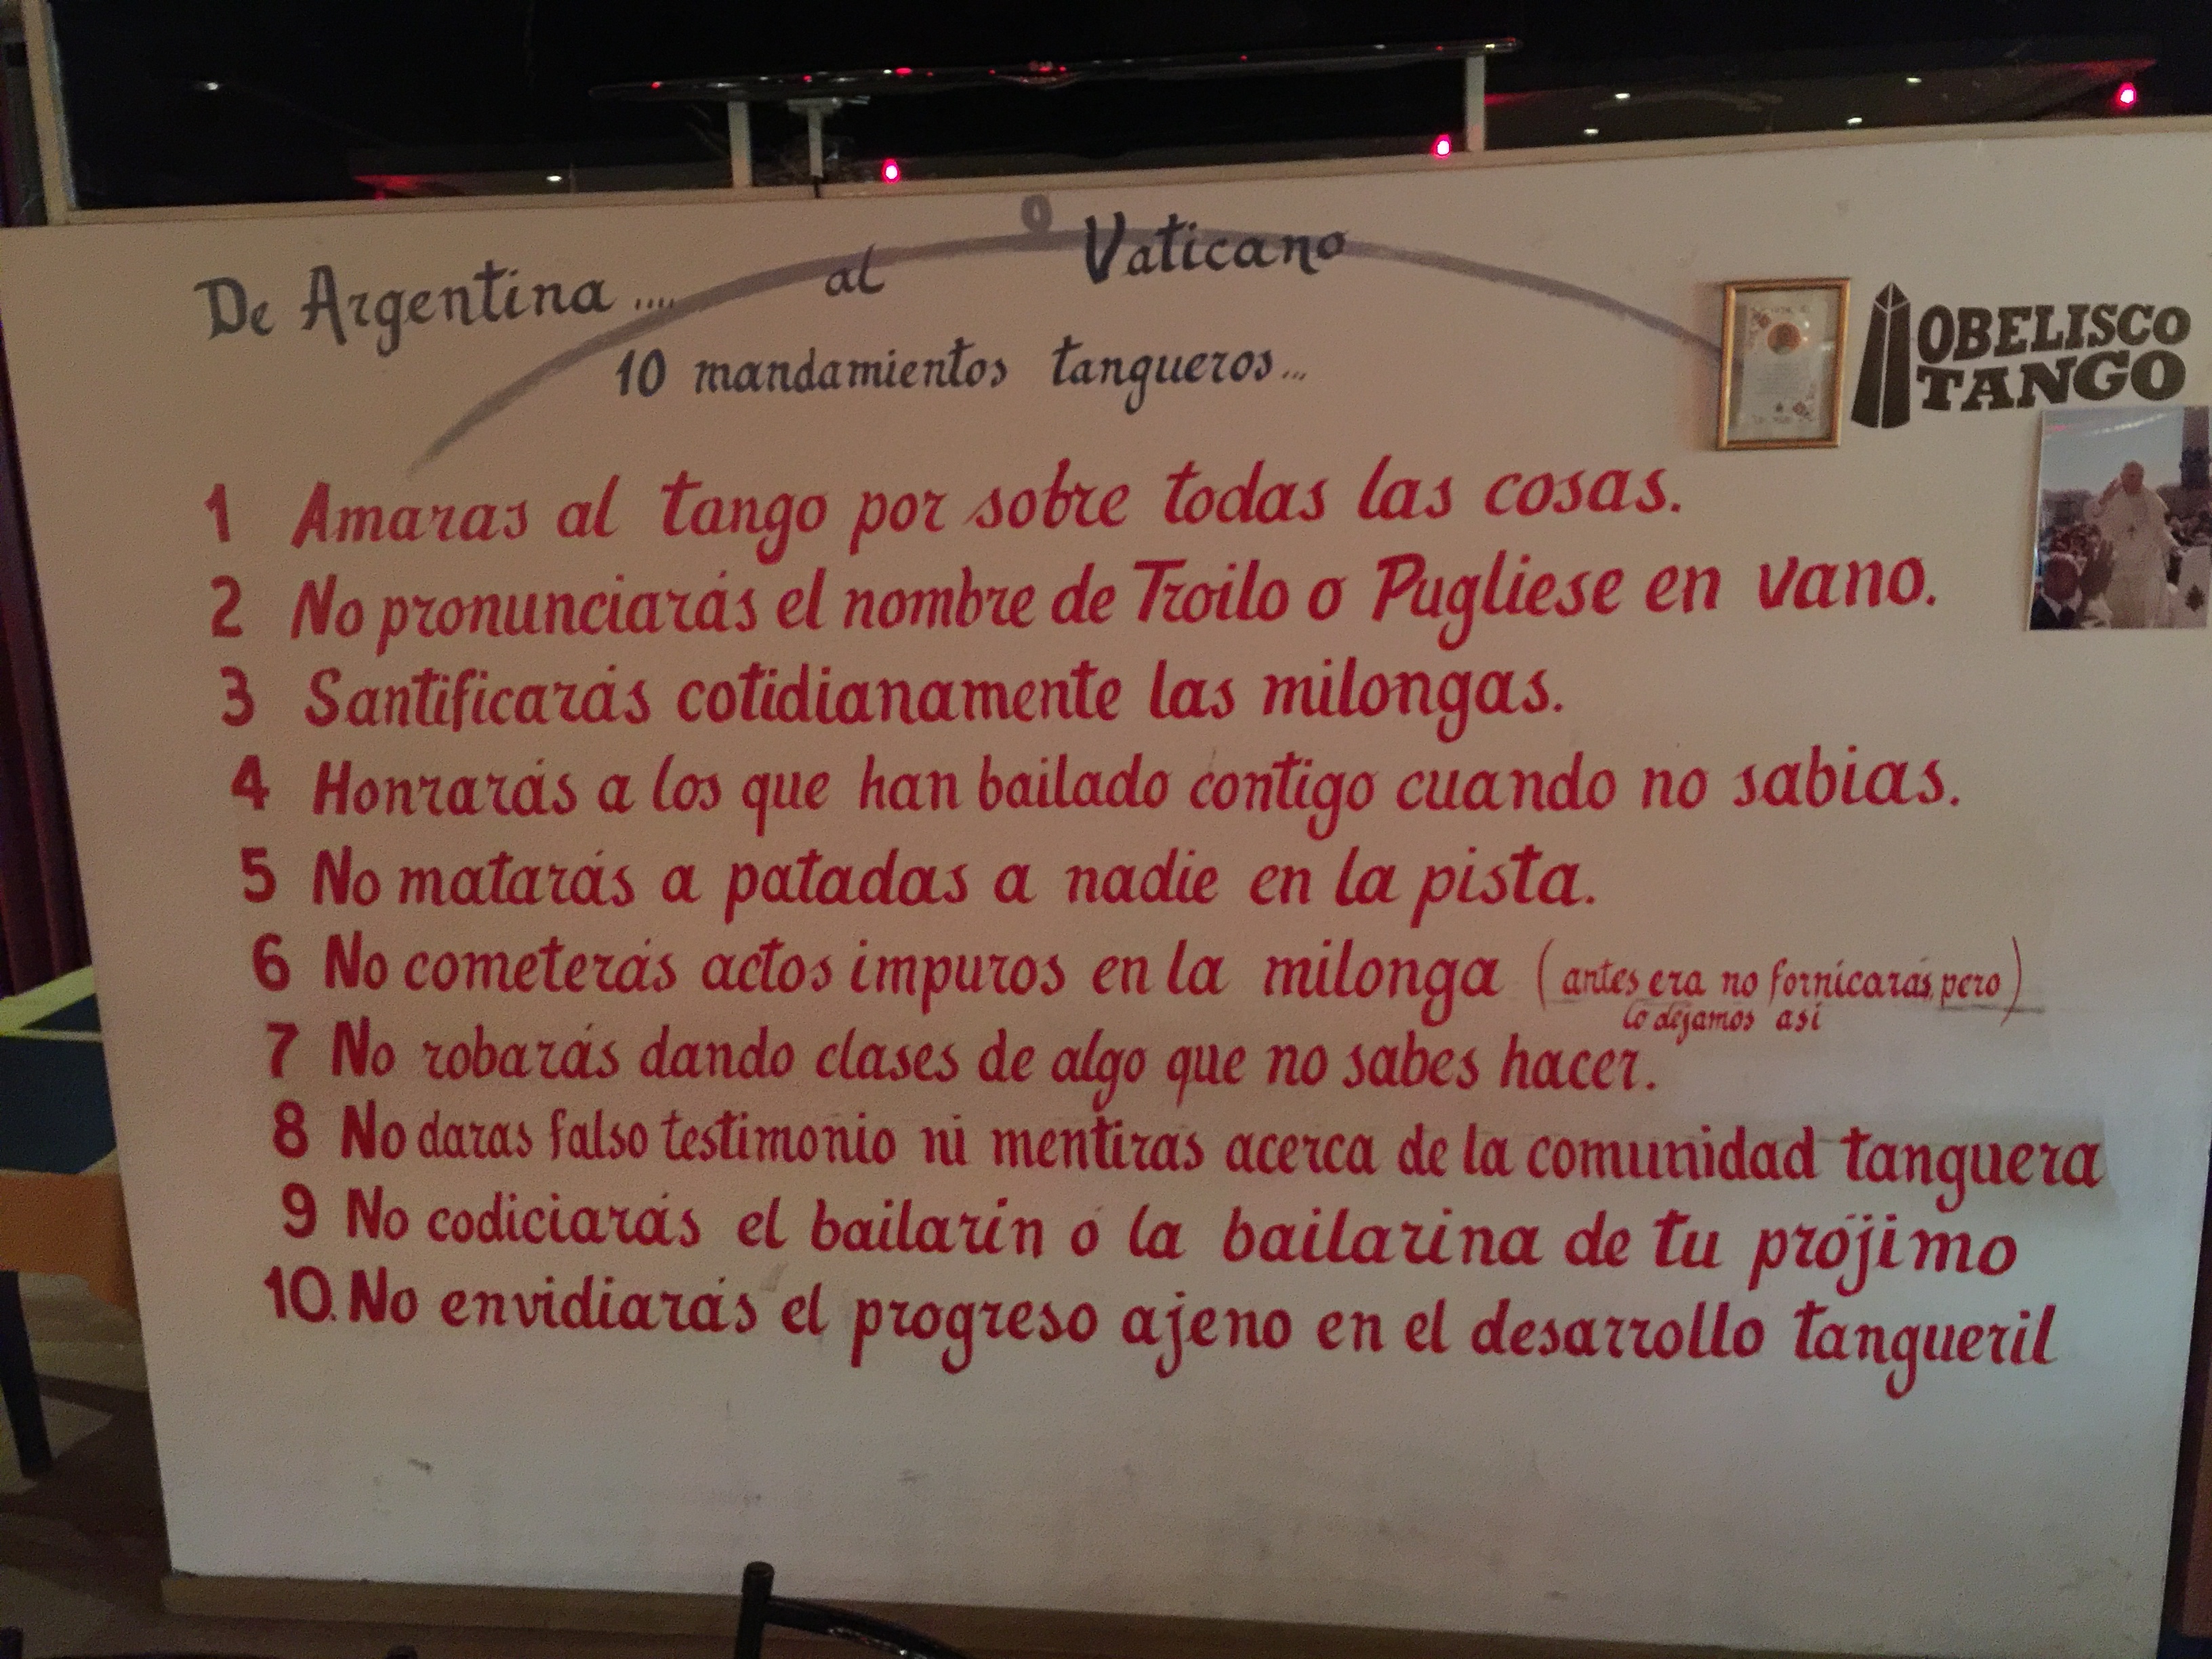 De Argentina .... al Vaticano
10 mandamientos tangueros...
OBELISCO
TANGO
1 Amaras al tango por sobre todas las cosas.
2 No pronunciarás el nombre de Troilo o Pugliese en vano.
3 Santificarás cotidianamente las milongas.
4 Honrarás a los que han bailado contigo cuando no sabias.
5 No matarás a patadas a nadie en la pista.
6 No cometerás actos impuros en la milonga (antes era no fornicarás, pero)
lo dejamos así
7 No robarás dando clases de algo que no sabes hacer.
8 No daras falso testimonio ni mentiras acerca de la comunidad tanguera
9 No codiciarás el bailarín ó la bailarina de tu prójimo
10. No envidiarás el progreso ajeno en el desarrollo tangueril